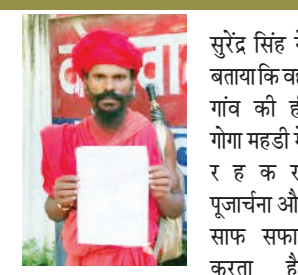 सुरेंद्र सिंह
बताया कि वह
गांव की
गोगा महडी
र ह क र
पूजार्चना और
साफ सफा
करता है